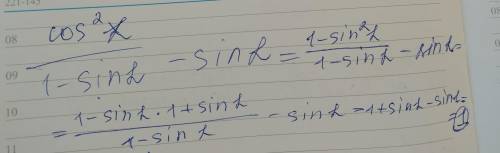 221-145
08
09
10
11
cos²α / 1-sinα - sinα = 1-sin²α / 1-sinα - sinα =
= 1-sinα · 1+sinα / 1-sinα - sinα = 1+sinα - sinα =
= 1